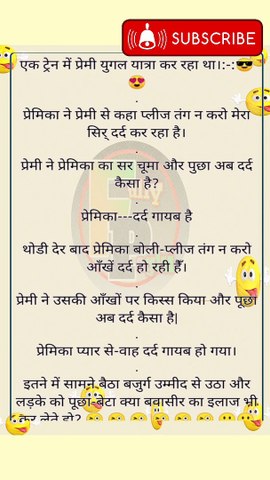 SUBSCRIBE
एक ट्रेन में प्रेमी युगल यात्रा कर रहा था।:-:😎
😍
.
प्रेमिका ने प्रेमी से कहा प्लीज तंग न करो मेरा
सिर् दर्द कर रहा है।
.
प्रेमी ने प्रेमिका का सर चूमा और पुछा अब दर्द
कैसा है?
.
प्रेमिका---दर्द गायब है
.
थोडी देर बाद प्रेमिका बोली-प्लीज तंग न करो
आँखें दर्द हो रही हैँ।
.
प्रेमी ने उसकी आँखों पर किस्स किया और पूछा
अब दर्द कैसा है|
.
प्रेमिका प्यार से-वाह दर्द गायब हो गया।
.
इतने में सामने बैठा बजुर्ग उम्मीद से उठा और
लड़के को पूछा-बेटा क्या बवासीर का इलाज भी
कर लेते हो?